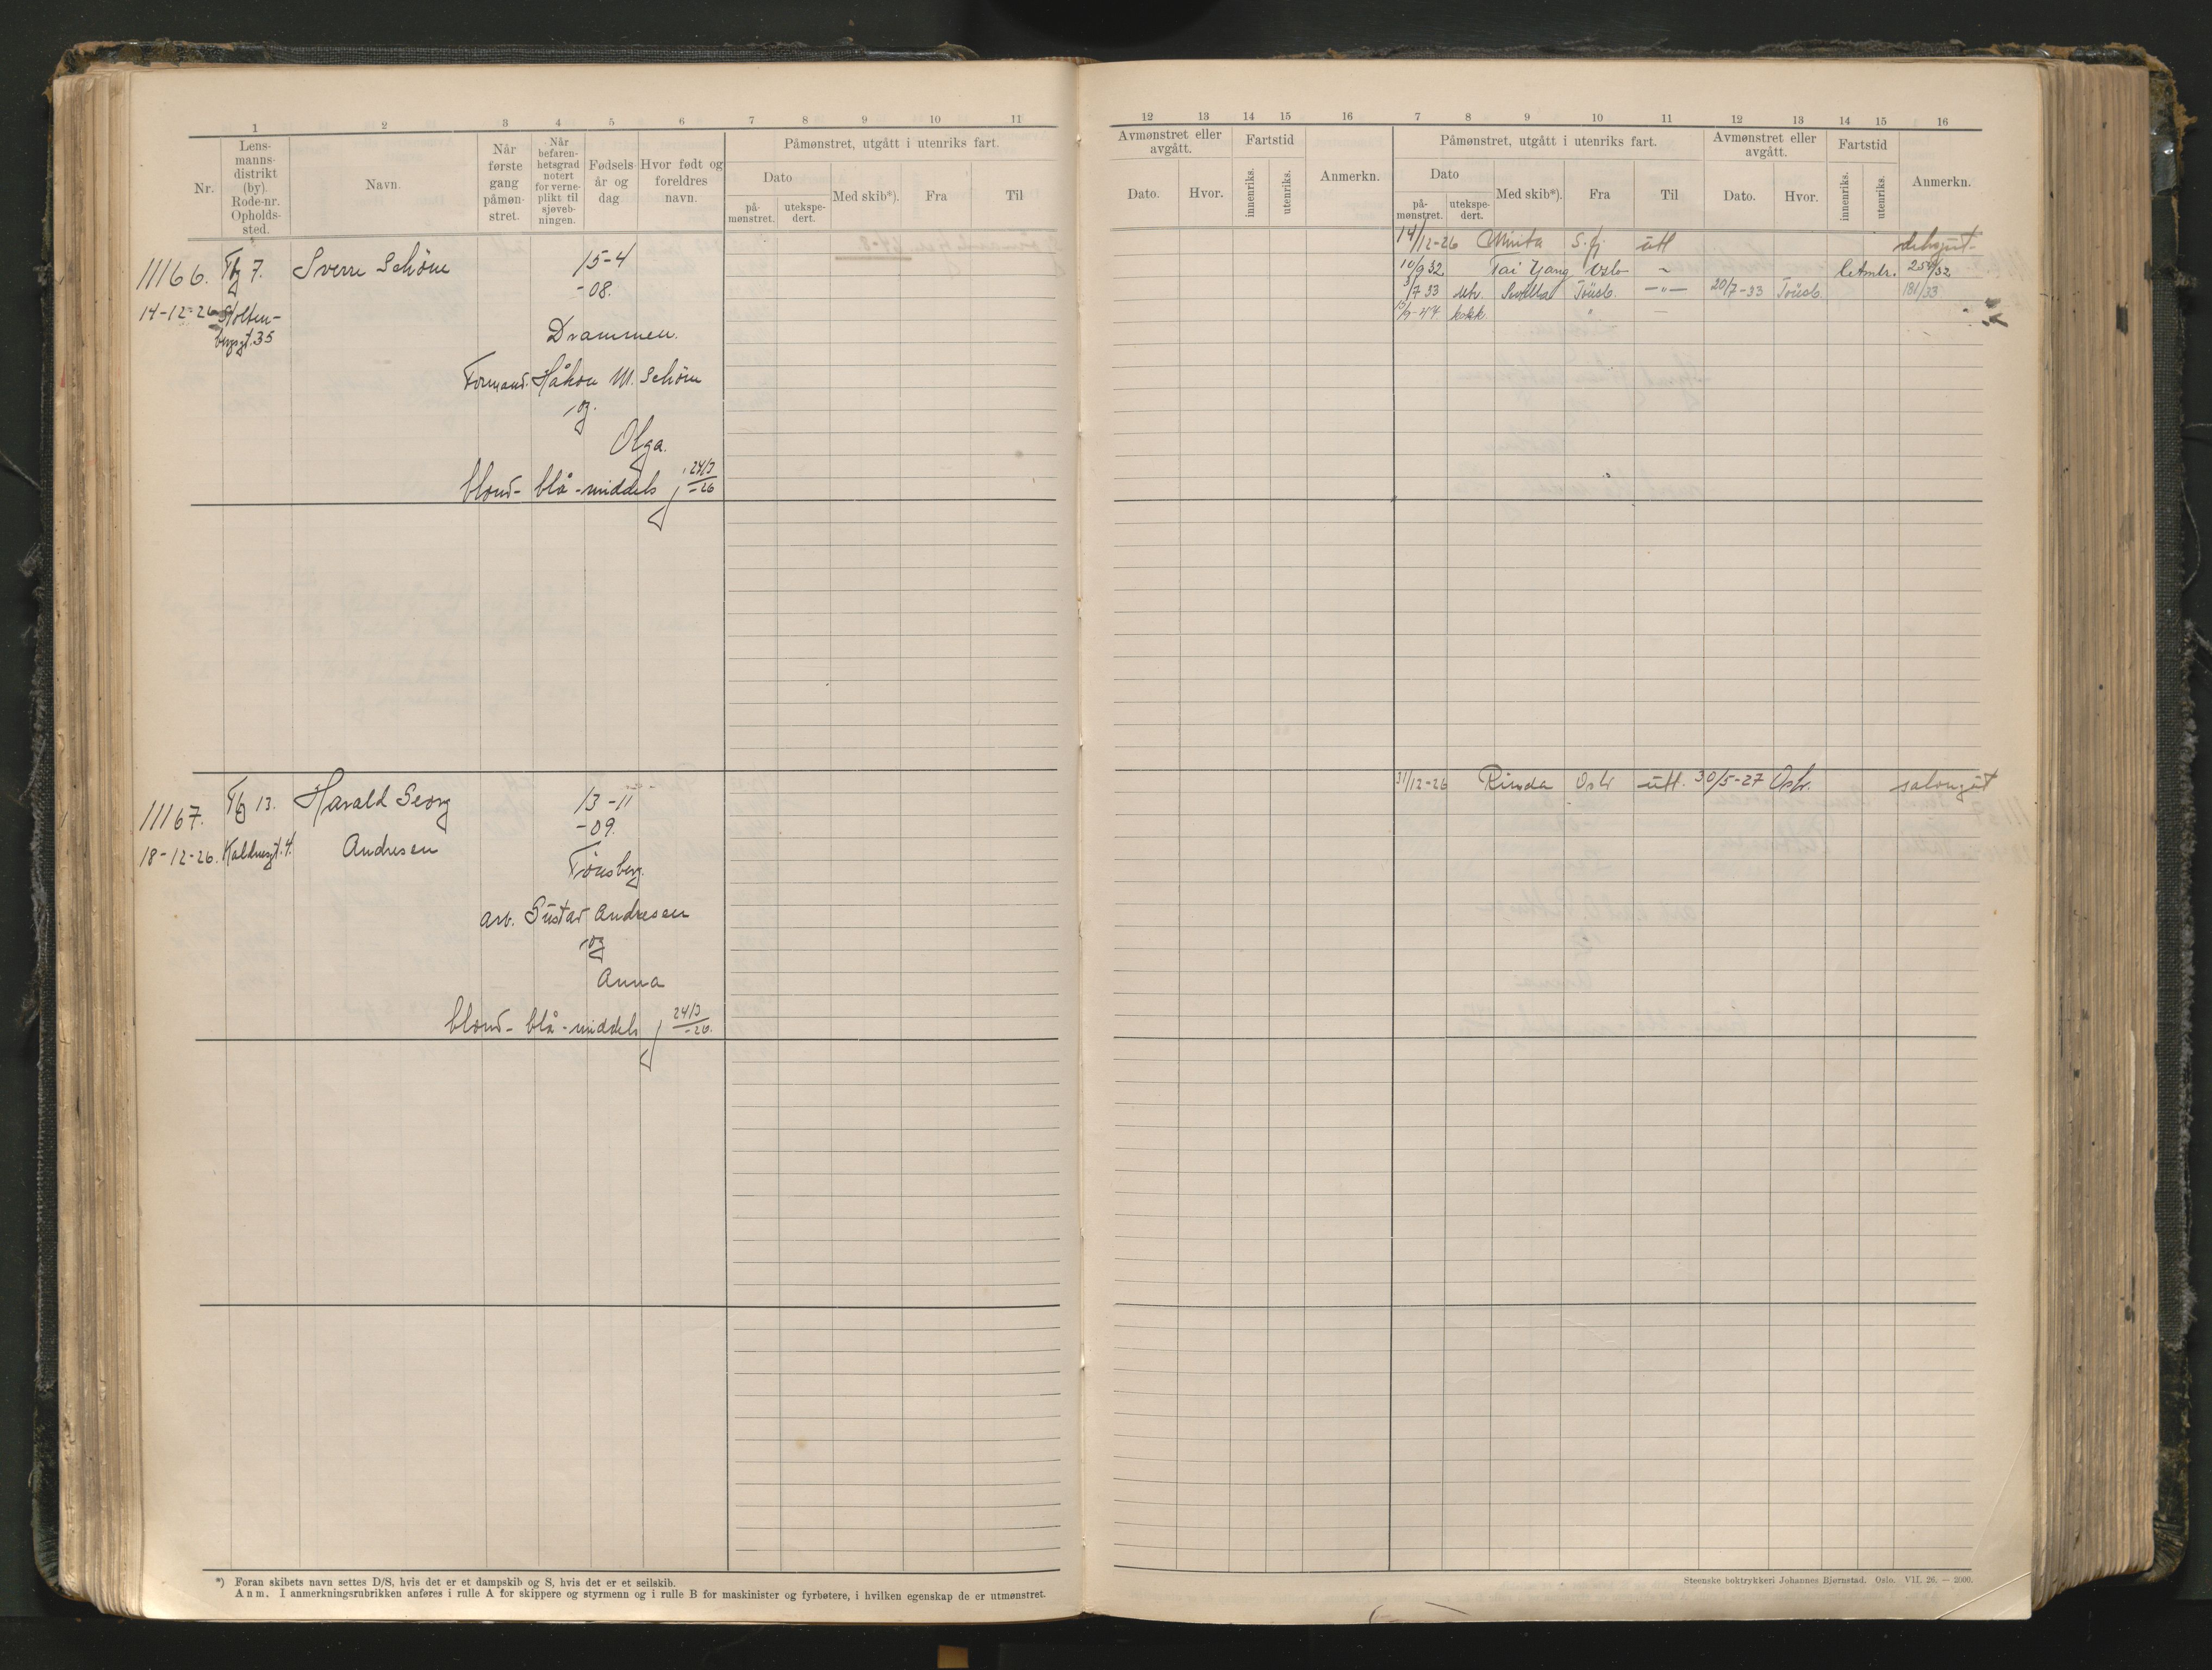 1 2 3 4 5 6 7 8 9 10 11
Nr.
Lens-
manns-
distrikt
(by).
Rode-nr.
Opholds-
sted.
Navn.
Når
første
gang
påmøn-
stret.
Når
befaren-
hetsgrad
notert
for verne-
plikt til
sjøveb-
ningen.
Fødsels-
år og
dag
Hvor født og
foreldres
navn.
Påmønstret, utgått i utenriks fart.
Dato
på-
mønstret.
utekspe-
dert.
Med skib*).
Fra
Til
11166. Tbg 7. Sverre Schöne 15-4
-08.
14-12-26 Stolten-
bergsgt. 35
Drammen.
Formand. Håkon M. Schöne
og
Olga.
blond- blå - middels 24/3
-26
11167. Tbg 13. Harald Georg 13-11
-09.
18-12-26. Kaldnesgt. 4. Andresen
Tönsberg.
arb. Gustav Andresen
og
Anna
blond- blå - middels 24/3
-26.
*) Foran skibets navn settes D/S, hvis det er et dampskib og S, hvis det er et seilskib.
Anm. I anmerkningsrubrikken anføres i rulle A for skippere og styrmenn og i rulle B for maskinister og fyrbøtere, i hvilken egenskap de er utmønstret.
12 13 14 15 16 7 8 9 10 11 12 13 14 15 16
Avmønstret eller
avgått.
Dato.
Hvor.
Fartstid
innenriks.
utenriks.
Anmerkn.
Påmønstret, utgått i utenriks fart.
Dato
på-
mønstret.
utekspe-
dert.
Med skib*).
Fra
Til
Avmønstret eller
avgått.
Dato.
Hvor.
Fartstid
innenriks.
utenriks.
Anmerkn.
14/12-26 Minita S.fj. utl dekksgut-
10/9 32 Tai Yang Oslo - 
3/7 33 Tönsb. -"- 20/7-33 Tönsb. 181/33
-47 kokk. " -
31/12-26 Rinda Oslo utl. 30/5-27 Oslo. salongut
Steenske boktrykkeri Johannes Bjørnstad. Oslo. VII. 26. — 2000.